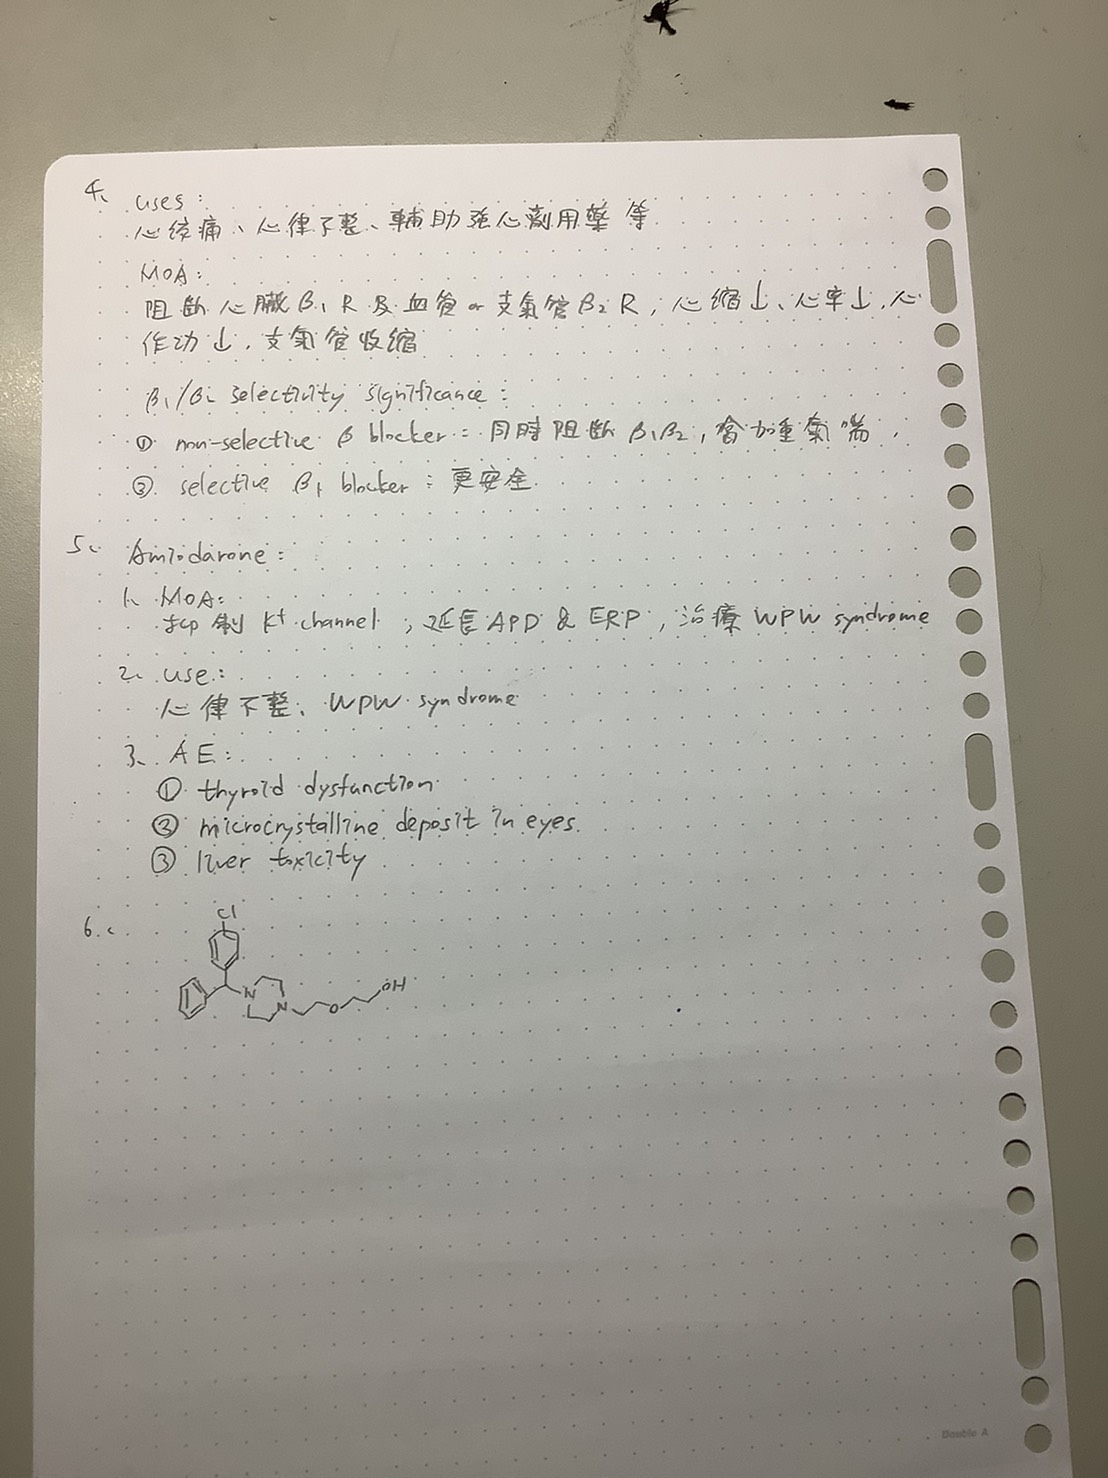 4、 uses:
心绞痛、心律不整、輔助強心劑用藥等
MOA:
阻斷心臟β1 R 及血管 or 支氣管β2 R, 心縮↓、心率↓、心
作功↓、支氣管收縮
β1/β2 selectivity significance:
① non-selective β blocker: 同時阻斷 β1β2, 會加重氣喘.
② selective β1 blocker: 更安全.
5、 Amiodarone:
1、 MOA:
抑制 K+ channel, 延長 APD & ERP, 治療 WPW syndrome
2、 use:
心律不整、WPW syndrome
3、 AE:
① thyroid dysfunction
② microcrystalline deposit in eyes.
③ liver toxicity
6、
Cl
N
N
O
OH
Double A